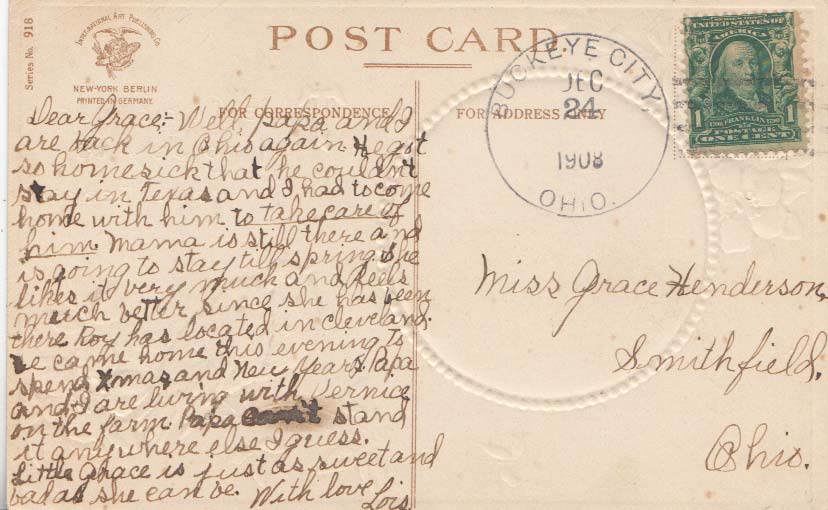 Series No. 918
INTERNATIONAL ART PUBLISHING Co.
NEW-YORK BERLIN
PRINTED IN GERMANY.
POST CARD
FOR CORRESPONDENCE
FOR ADDRESS ONLY
BUCKEYE CITY
DEC
24
1908
OHIO.
SERIES 1902
UNITED STATES OF
AMERICA
1 1
FRANKLIN
POSTAGE
ONE CENT
Dear Grace;- Well Papa and I
are back in Ohio again. He got
so homesick that he couldn't
stay in Texas and I had to come
home with him to take care of
him. Mama is still there and
is going to stay till spring. She
likes it very much and feels
much better since she has been
there Roy has located in Cleveland.
He came home this evening to
spend Xmas and New Years. Papa
and I are living with Vernice
on the farm. Papa stand
it anywhere else I guess.
Little Grace is just as sweet and
bad as she can be. With love
Lois
Miss Grace Henderson,
Smithfield,
Ohio.